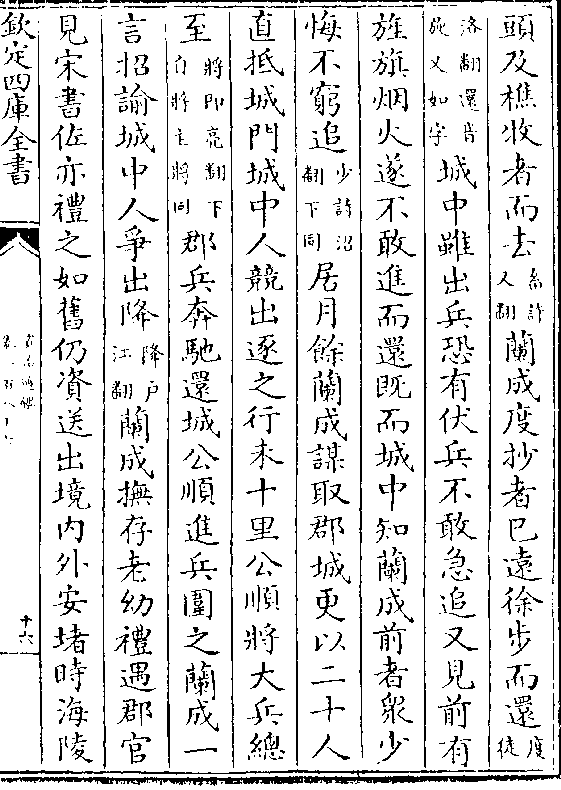 頭及樵牧者而去畜許又翻蘭成度抄者已遠徐步而還度徒
洛翻還音旋又如字城中雖出兵恐有伏兵不敢急追又見前有
旌旗烟火遂不敢進而還既而城中知蘭成前者衆少
悔不窮追少詩沼翻下同居月餘蘭成謀取郡城更以二十人
直抵城門城中人競出逐之行未十里公順將大兵總
至將即亮翻下自將主將同郡兵奔馳還城公順進兵圍之蘭成一
言招諭城中人爭出降降户江翻蘭成撫存老幼禮遇郡官
見宋書佐亦禮之如舊仍資送出境内外安堵時海陵
欽定四庫全書
十六